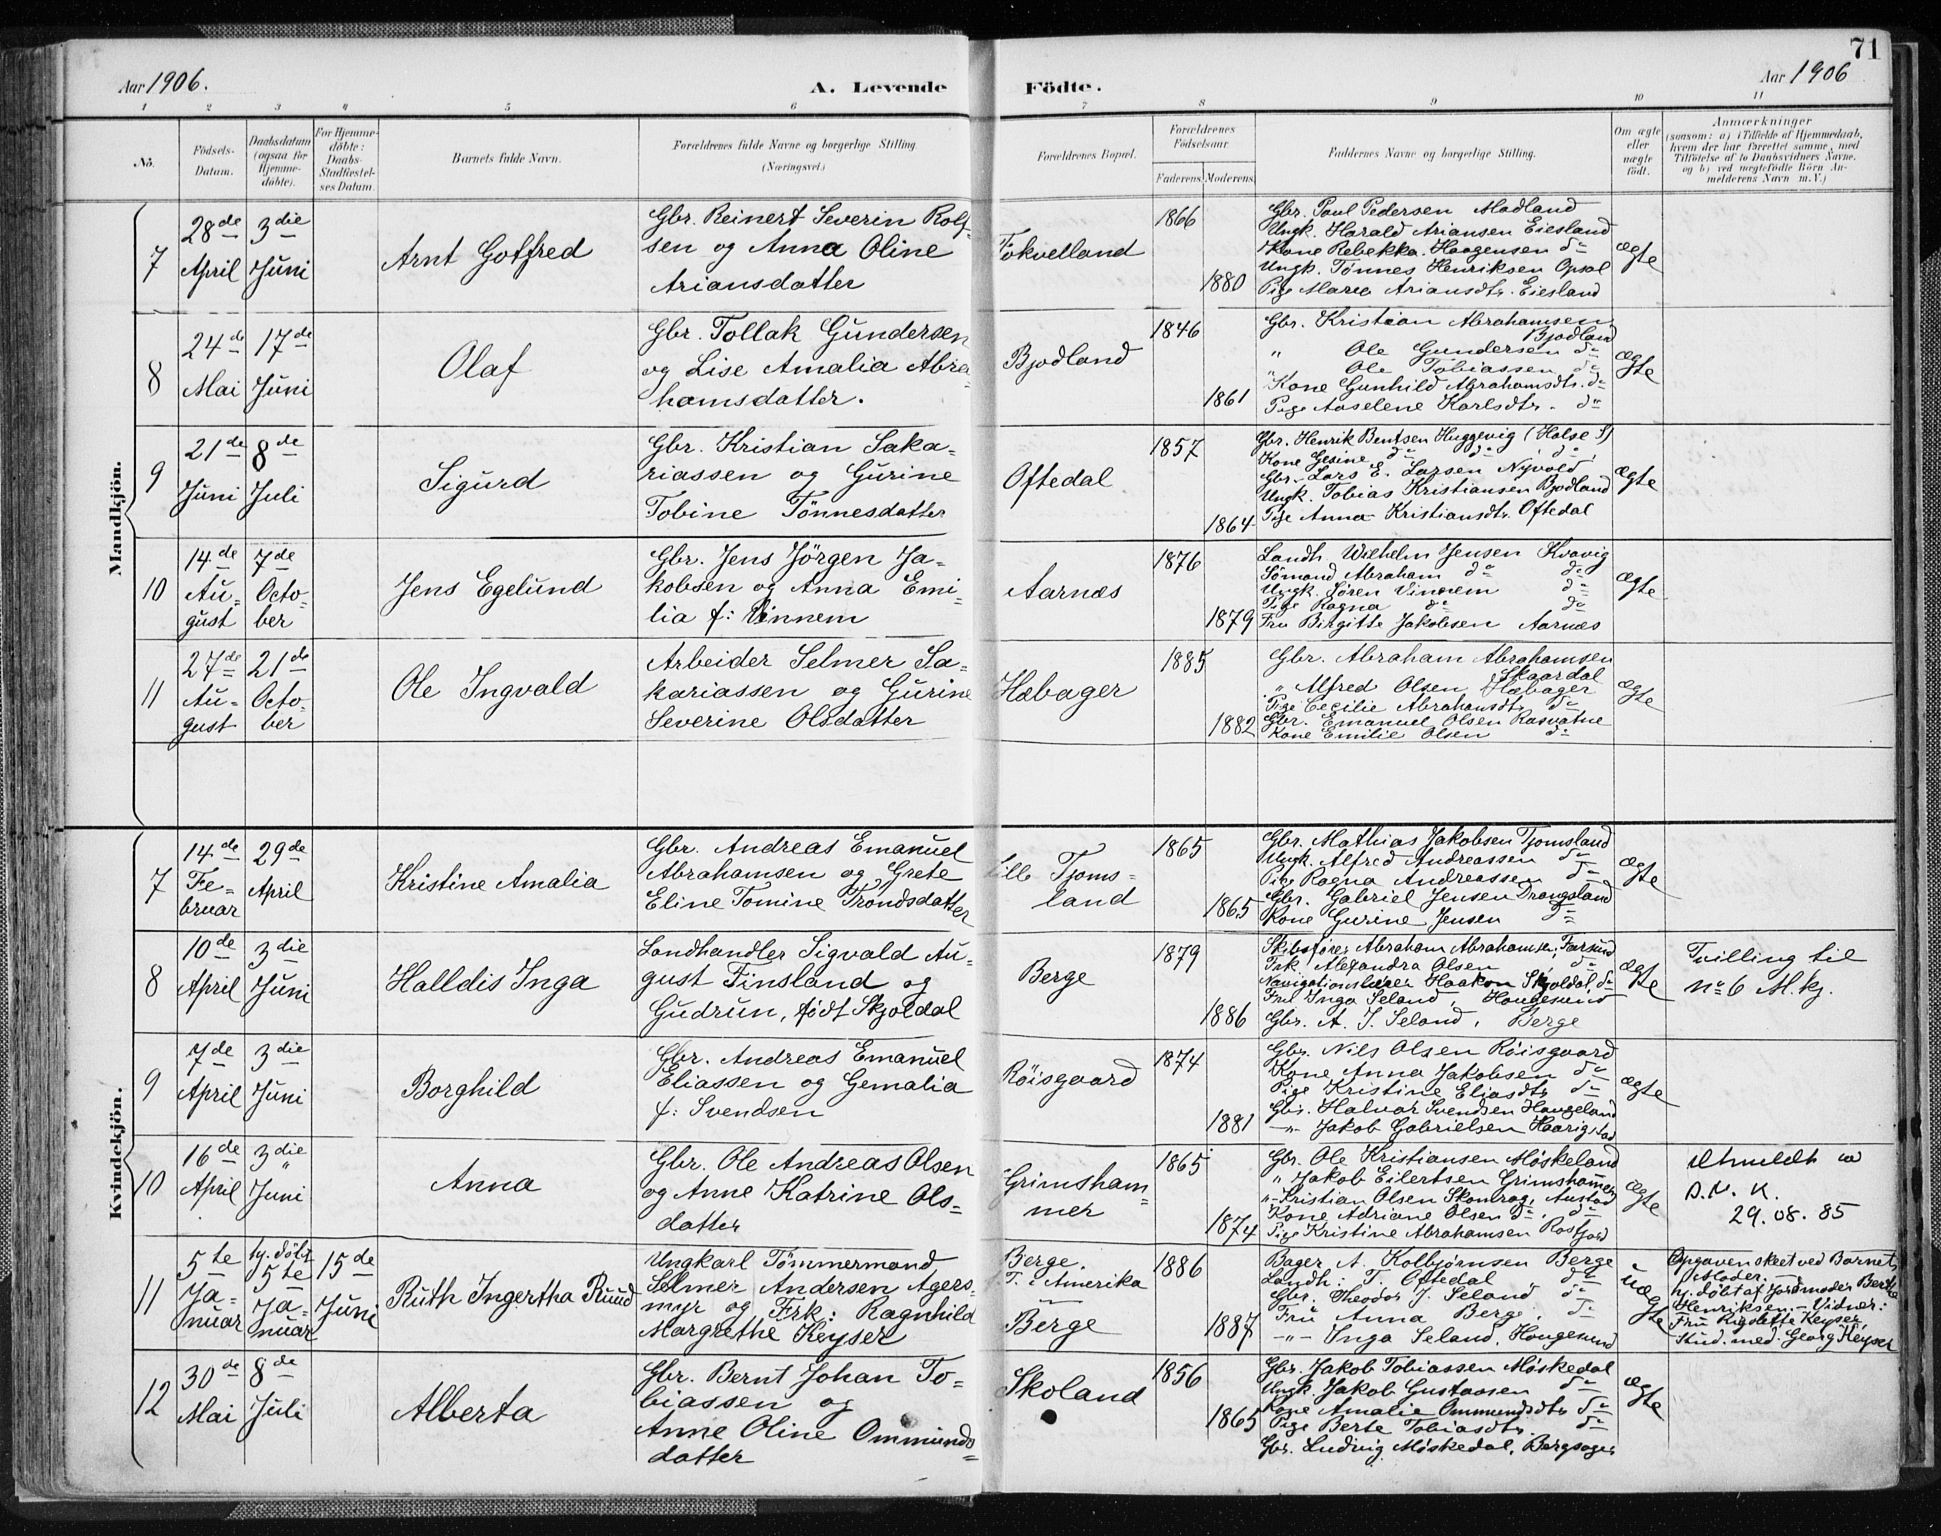 71
Aar 1906.
A. Levende
Födte.
Aar 1906
1 2 3 4 5 6 7 8 9 10 11
No.
Födsels-
Datum.
Daabsdatum
(ogsaa for
Hjemme-
döbte).
For Hjemme-
döbte:
Daabs-
Stadfæstel-
ses Datum.
Barnets fulde Navn.
Forældrenes fulde Navne og borgerlige Stilling.
(Næringsvei.)
Forældrenes Bopæl.
Forældrenes
Födselsaar.
Faderens.
Moderens.
Faddernes Navne og borgerlige Stilling.
Om ægte
eller
uægte
födt.
Anmærkninger
(saasom: a) i Tilfælde af Hjemmedaab,
hvem der har forrettet samme, med
Tilföielse af to Daabsvidners Navne,
og b) ved uægtefödte Börn An-
melderens Navn m. V.)
Mandkjön.
7
28de
April
3die
Juni
Arnt Gotfred
Gbr. Reinert Severin Rolf-
sen og Anna Oline
Ariansdatter
Fokvelland
1866
1880
Gbr. Paul Pedersen Madland
Ungk. Harald Ariansen Eiesland
Kone Rebekka Haagensen do
Ungk. Tønnes Henriksen Opsal
Pige Marie Ariansdtr. Eiesland
ægte
8
24de
Mai
17de
Juni
Olaf
Gbr. Tollak Gundersen
og Lise Amalia Abra-
hamsdatter.
Bjodland
1846
1861
Gbr. Kristian Abrahamsen
Bjodland
" Ole Gundersen do
" Ole Tobiassen do
Kone Gunhild Abrahamsdtr. do
Pige Aaselene Karlsdtr. do
ægte
9
21de
Juni
8de
Juli
Sigurd
Gbr. Kristian Saka-
riassen og Gurine
Tobine Tönnesdatter
Oftedal
1857
1864
Gbr. Henrik Bentsen Huggevig (Halse S)
Kone Gesine do do do
Gbr. Lars E. Larsen Nyvold
Ungk. Tobias Kristiansen Bjodland
Pige Anna Kristiansdtr. Oftedal
ægte
10
14de
Au-
gust
7de
Octo-
ber
Jens Egelund
Gbr. Jens Jörgen Ja-
kobsen og Anna Emi-
lia f: Vinnem
Aarnæs
1876
1879
Landh. Wilhelm Jensen Kvavig
Sömand Abraham do do
Ungk. Sören Vinnem do
Pige Ragna do do
Fru Birgitte Jakobsen Aarnæs
ægte
11
27de
Au-
gust
21de
Octo-
ber
Ole Ingvald
Arbeider Selmer Sa-
kariassen og Gurine
Severine Olsdatter
Hæbager
1885
1882
Gbr. Abraham Abrahamsen
Skaardal
" Alfred Olsen Hæbager
Pige Cecilie Abrahamsdtr. do
Gbr. Emanuel Olsen Rasvatne
Kone Emilie Olsen do
ægte
Kvindekjön.
7
14de
Fe-
bruar
29de
April
Kristine Amalia
Gbr. Andreas Emanuel
Abrahamsen og Grete
Eline Tomine Trondsdatter
Lille Tjoms-
land
1865
1865
Gbr. Mathias Jakobsen Tjomsland
Ungk. Alfred Andreassen do
Pige Ragna Andreassen do
Gbr. Gabriel Jensen Drangsland
Kone Gurine Jensen do
ægte
8
10de
April
3die
Juni
Halldis Inga
Landhandler Sigvald Au-
gust Finsland og
Gudrun, født Skjoldal
Berge
1879
1886
Skibsfører Abraham Abrahamsen, Farsund
Frk. Alexandra Olsen do
Navigationslærer Haakon Skjoldal do
Fru Inga Seland, Haugesund
Gbr. A. I. Seland, Berge
ægte
Tvilling til
no 6 M.kj.
9
7de
April
3die
Juni
Borghild
Gbr. Andreas Emanuel
Eliassen og Gemalia
f: Svendsen
Röisgaard
1874
1881
Gbr. Nils Olsen Röisgaard
Kone Anna Jakobsen do
Pige Kristine Eliasdtr. do
Gbr. Halvar Svendsen Haugeland
-"- Jakob Gabrielsen Haarigstad
ægte
10
16de
April
3die
Juni
Anna
Gbr. Ole Andreas Olsen
og Anne Katrine Ols-
datter
Grimsham-
mer
1865
1874
Gbr. Ole Kristiansen Møskeland
" Jakob Eilertsen Grimshammer
" Kristian Olsen Skomrag, Austad
Kone Adriane Olsen do do
Pige Kristine Abrahamsen Rosfjord
ægte
Utmeldt av
D. N. K.
29.08.85
11
5te
Ja-
nuar
hj. döbt
5te
Ja-
nuar
15de
Juni
Ruth Ingertha Ruud
Ungkarl Tömmermand
Selmer Andersen Agers-
myr og Frk: Ragnhild
Margrethe Keyser
Berge,
T. i Amerika
Berge
1886
1887
Bager A. Kolbjørnsen Berge
Landh: T. Oftedal do
Gbr. Theodor J. Seland do
Fru Anna Berge, do
-"- Inga Seland. Haugesund
uægte
Opgaven skeet ved Barnets
hj. döbt af Jordmoder Berthe
Henriksen. - Vidner:
Keyser,
Stud. med. Georg Keyser
12
30de
Mai
8de
Juli
Alberta
Gbr. Bernt Johan To-
biassen og
Anne Oline Ommunds-
datter
Skoland
1856
1865
Gbr. Jakob Tobiassen Møskedal
Ungk. Jakob Gustavsen do
Kone Amalie Ommundsdtr. do
Pige Berte Tobiasdtr. do
Gbr. Ludvig Møskedal, Bergsager
ægte